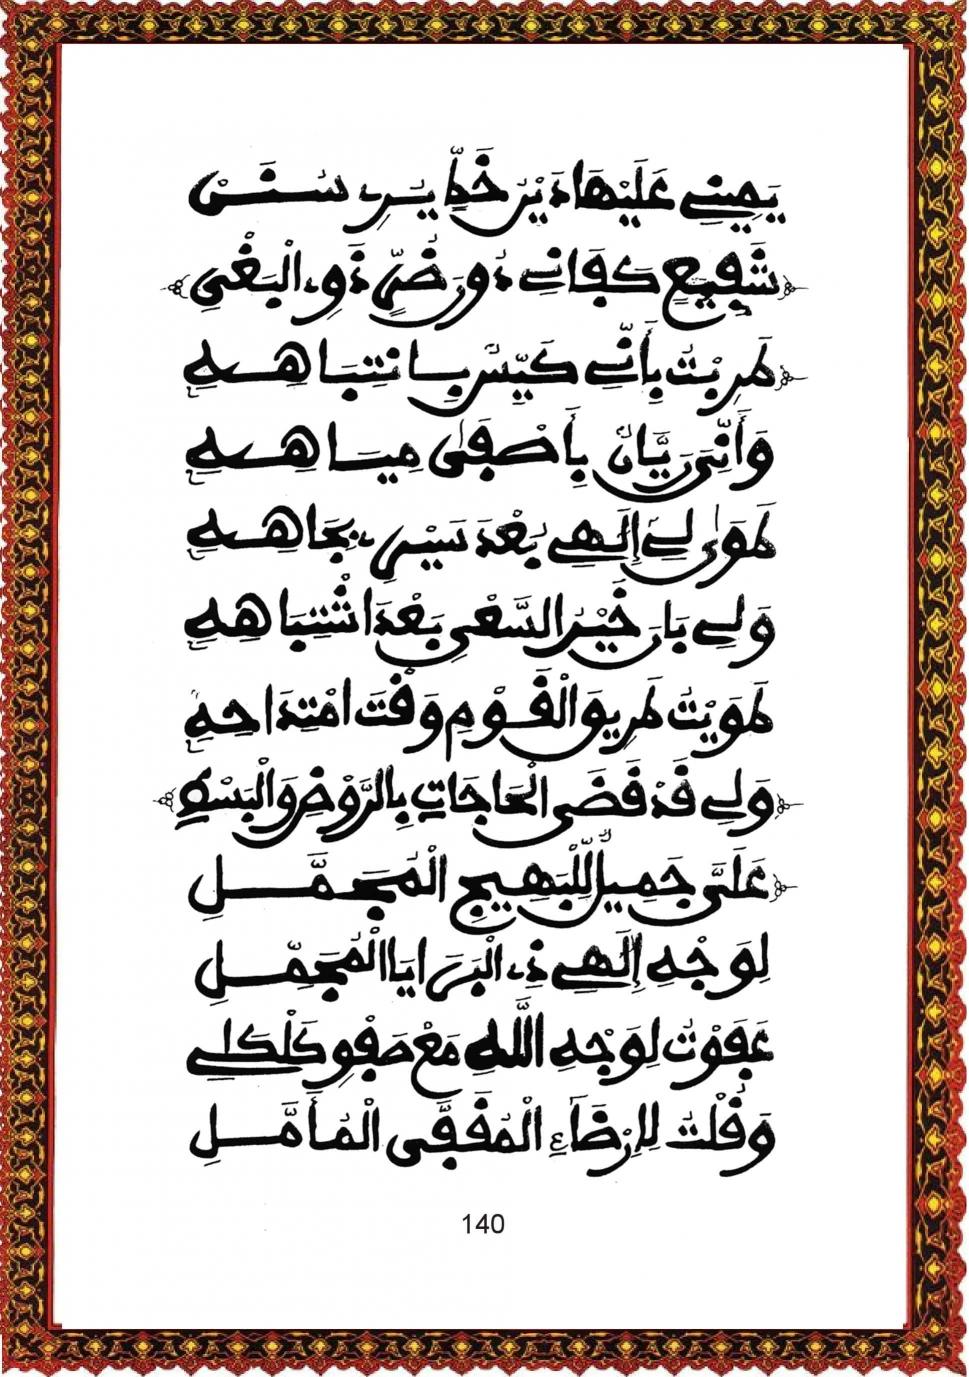 يَمِينِي عَلَيْهَا دَيْرَ خَطِّ يَسِيرِ سُنَنِ
شَفِيعٍ كَفَانِي دُورَ ضُرٍّ ذَوِي الْبَغْيِ
طَرِبْتُ بِأَنِّي كَيِّسٌ بِانْتِبَاهِهِ
وَأَنِّيَ رَيَّانٌ بِأَصْفَى مِيَاهِهِ
طَوَى لِي إِلَهِي بُعْدَ سَيْرِي بِجَاهِهِ
وَلِي بَانَ خَيْرُ السَّعْيِ بَعْدَ اشْتِبَاهِهِ
طَوَيْتُ طَرِيقَ الْقَوْمِ وَقْتَ امْتِدَاحِهِ
وَلِي قَدْ قَضَى الْحَاجَاتِ بِالرَّوْضِ وَالْبَسْطِ
عَلَيَّ جَمِيلٌ لِلْبَهِيجِ الْمُجَمَّلِ
لِوَجْهِ إِلَهِي ذِي الْبَرَايَا الْمُجَمِّلِ
عَفَوْتُ لِوَجْهِ اللَّهِ مَعْ صَفْوِ كَلْكَلِي
وَقُلْتُ لِإِرْضَاءِ الْمُقَفَّى الْمُأَمَّلِ
140